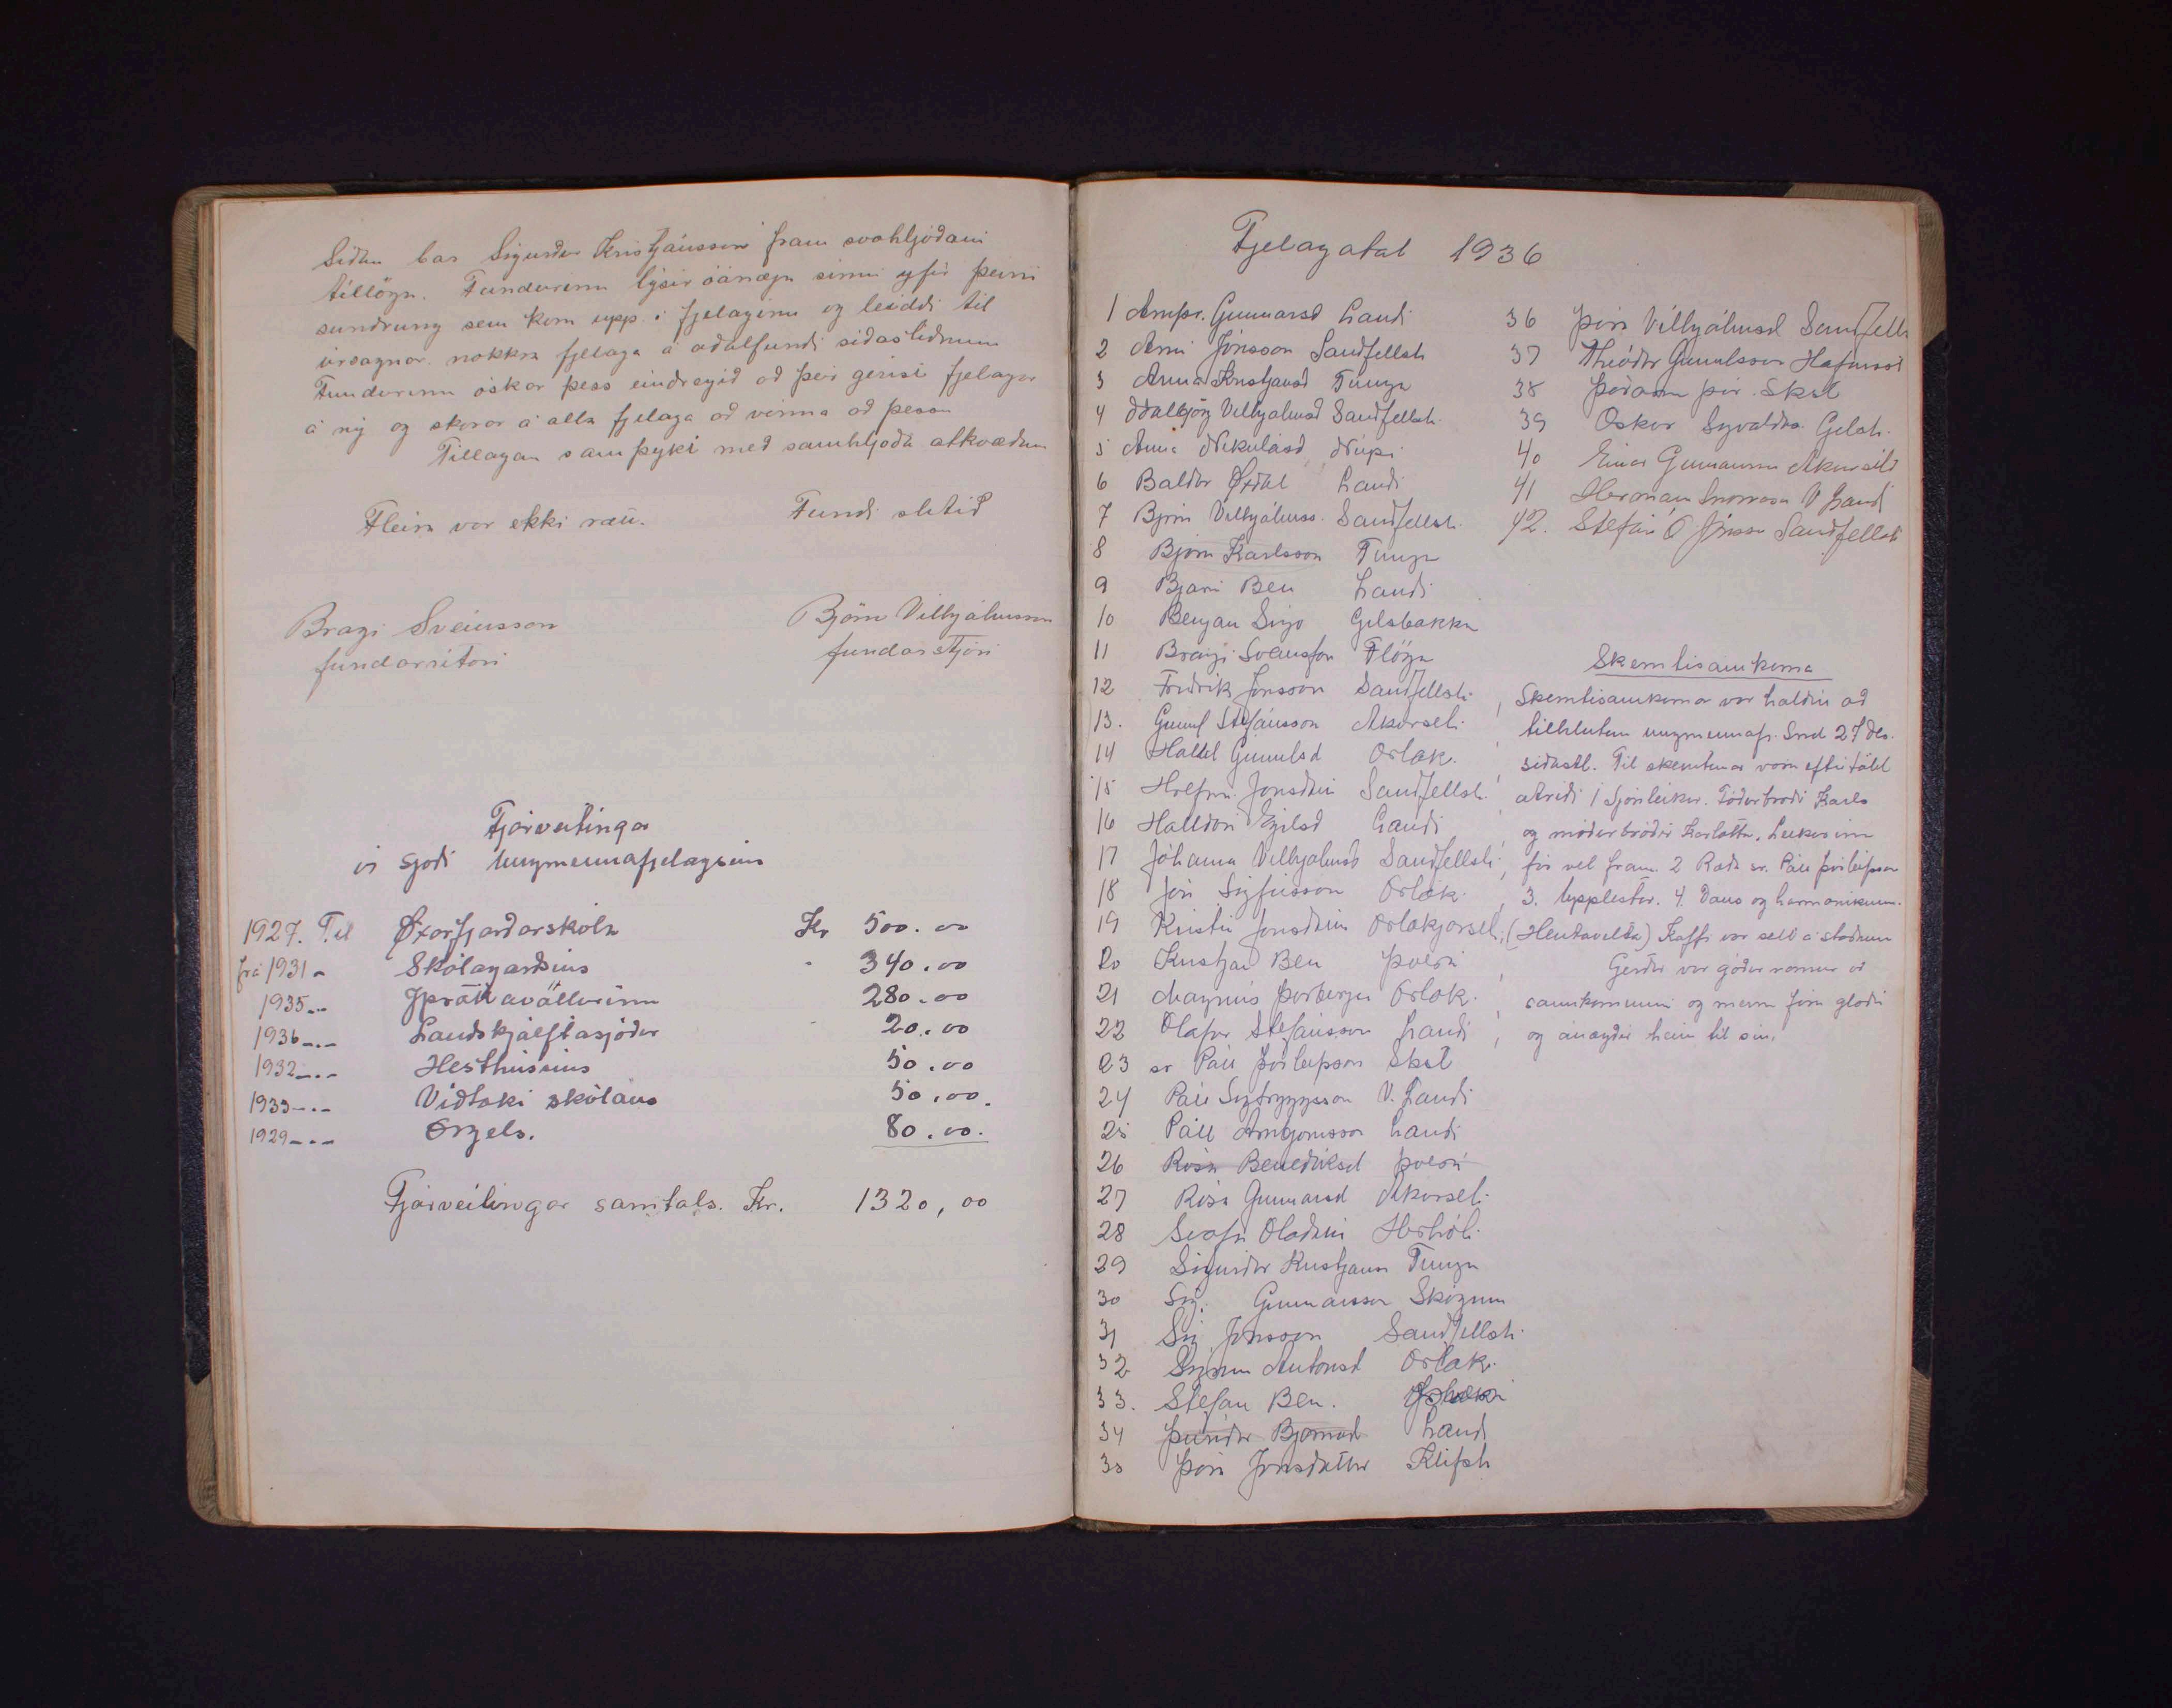 Síðan bar Sigurður Kristjánsson fram svohljóðani
tillögu. Fundurinn lýsir óánægu sinni yfir þeirri
sundrung sem kom upp í fjelaginu og leiddi til
úrsagnar nokkra fjelaga á aðalfundi síðastliðnum
Fundurinn óskar þess eindregið að þeir gerist fjelagar
á ný og skorar á alla fjelaga að vinna að þessu
Tillagan samþykt með samhljóða atkvæðum
Fleira var ekki rætt. Fundi slitið
Bragi Sveinsson
fundarritari
Björn Vilhjálmsson
fundarstjóri
Fjárveitingar
úr sjóði Ungmennafjelagsins
1927. Til Øxarfjarðarskóla Kr 500.00
frá 1931 - Skólagarðsins 340.00
1935 -.- Íþróttavöllurinn 280.00
1936 -.- Landskjálftasjóður 20.00
1932 -.- Hesthúsins 50.00
1933 -.- Viðtæki skólans 50.00.
1929 -.- Orgels. 80.00.
Fjárveitingar samtals. Kr. 1320,00
Fjelagatal 1936
1 Arnþr. Gunnarsd Landi
2 Arni Jónsson Sandfellsh
3 Anna Kristjansd Tunga
4 Aðalbjörg Vilhjalmsd Sandfellsh.
5 Anna Nikulásd Núpi
6 Baldur Øxdal Landi
7 Björn Vilhjálmss. Sandfellsh.
8 Björn Karlsson Tunga
9 Bjarni Ben Landi
10 Benjan Sigv Gilsbakka
11 Bragi Sveinsson Flögu
12 Friðrik Jónsson Sandfellsh.
13. Gunnl Stefánsson Akursel.
14 Halld Gunnlsd Ærlæk.
15 Jónsdóttir Sandfellsh.
16 Halldóra Egilsd Landi
17 Jóhanna Vilhjalmsd Sandfellsh
18 Jón Sigfússon Ærlæk.
19 Kristín Jónsdóttir Ærlækjarsel
20 Kristjan Ben Þverá
21 Magnús Þorbergss Ærlæk.
22 Olafur Stefánsson Landi
23 sr Páll Þorleifsson Skst
24 Páll Sigtryggsson V. Landi
25 Páll Arngrimsson Landi
26 Rósa Benediksd Þverá
27 Rósa Gunnarsd Akursel.
28 Svafa Oladóttir
29 Sigurður Kristjanss Tunga
30 Sig. Gunnarsson Skógum
31 Sig Jónsson Sandfellsh.
32 Sigrun Antonsd Ærlæk.
33. Stefan Ben.
34 Þuríður Bjornsd Landi
35 Þóra Jónsdóttir Klifsh
36 Þóra Vilhjálmsd Sandfellh
37 Theódór Gunnlsson Hafursst
38 Þórarinn Þór. Skst
39 Oskar Sigvaldas Gilsb.
40 Einar Gunnarsson Akurseli
41 Herman Snorrason V Landi
42. Stefán Ó Jónsson Sandfellsh
Skemtisamkoma
Skemtisamkoma var haldin að
tilhlutun ungmennafj. 27 des.
síðastl. Til skemtunar voru eftirtöld
atriði 1 Sjónleikur. Föðurbróðir Karls
og móðurbróðir Karlottu. Leikurinn
fór vel fram. 2 Ræða sr. Páll Þorleifsson
3. Upplestur. 4. Dans og harmonikum.
(Hentavelta) Kaffi var selt á staðnum
Gerður var góður rómur að
samkomunni og menn fóru glaðir
og ánægðir heim til sín.